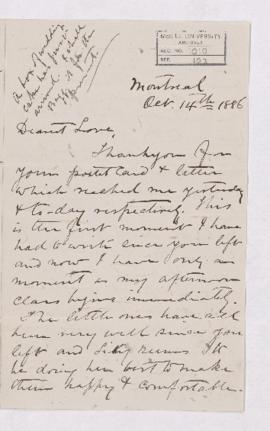 A box of wedding
cake has just
arrived. I shall
the
McGILL UNIVERSITY
ARCHIVES
ACC. NO.
REF.
Montreal
Oct. 14th 1886
Dearest Love,
Thankyou for
your postcard & letter
which reached me yesterday
& to-day respectively. This
is the first moment I have
had to write since you left
and now I have only a
moment as my afternoon
class begins immediately.
The little ones have all
been very well since you
left and seems to
be doing her best to make
them happy & comfortable.